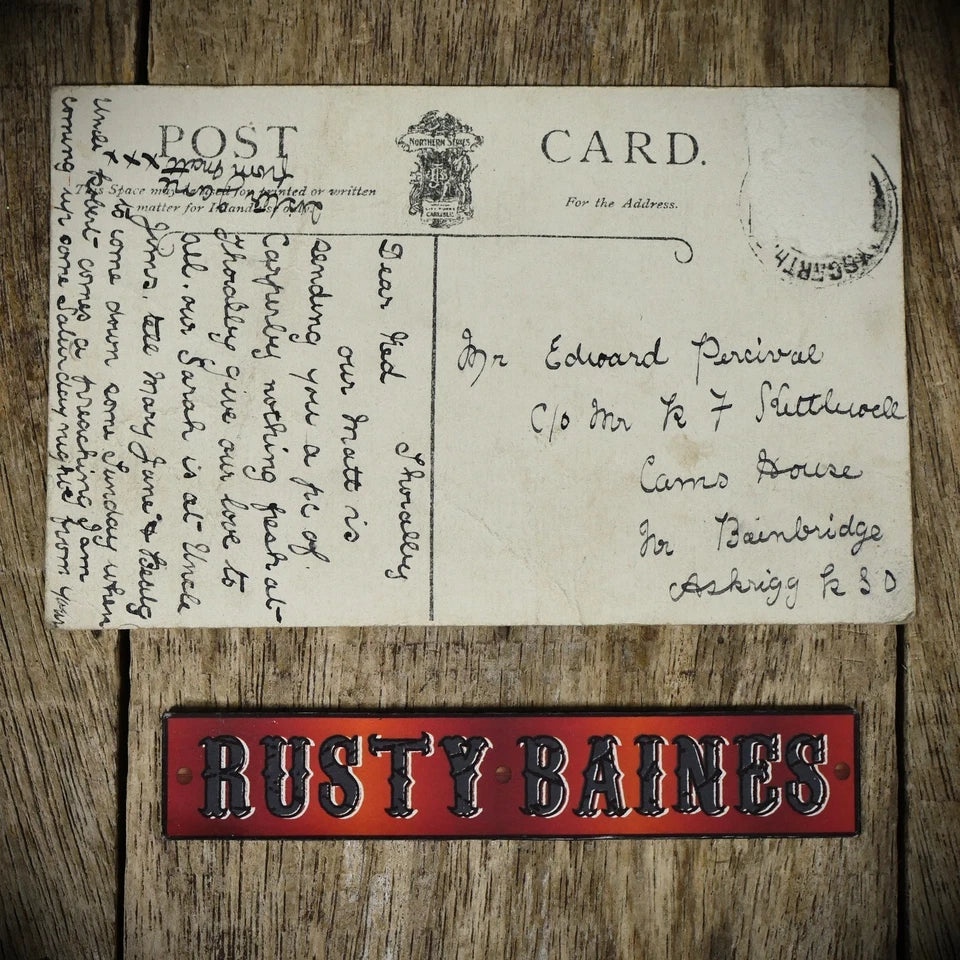 POST CARD.
NORTHERN SERIES
CARLISLE
This Space may be used for printed or written
matter for Inland use only.
For the Address.
YSGARTH
Mr Edward Percival
C/o Mr R F Kettlewell
Cams House
Nr Bainbridge
Askrigg R S O
Thoralby
Dear Ned
our Matt is
sending you a pc of
Carperby nothing fresh at
Thoralby give our love to
all. our Sarah is at Uncle
Jims. tell Mary Jane & Becky
to come down some Sunday when
Uncle Robert comes a preaching I am
coming up some Saturday night from your
from Matt
x x x
RUSTY BAINES